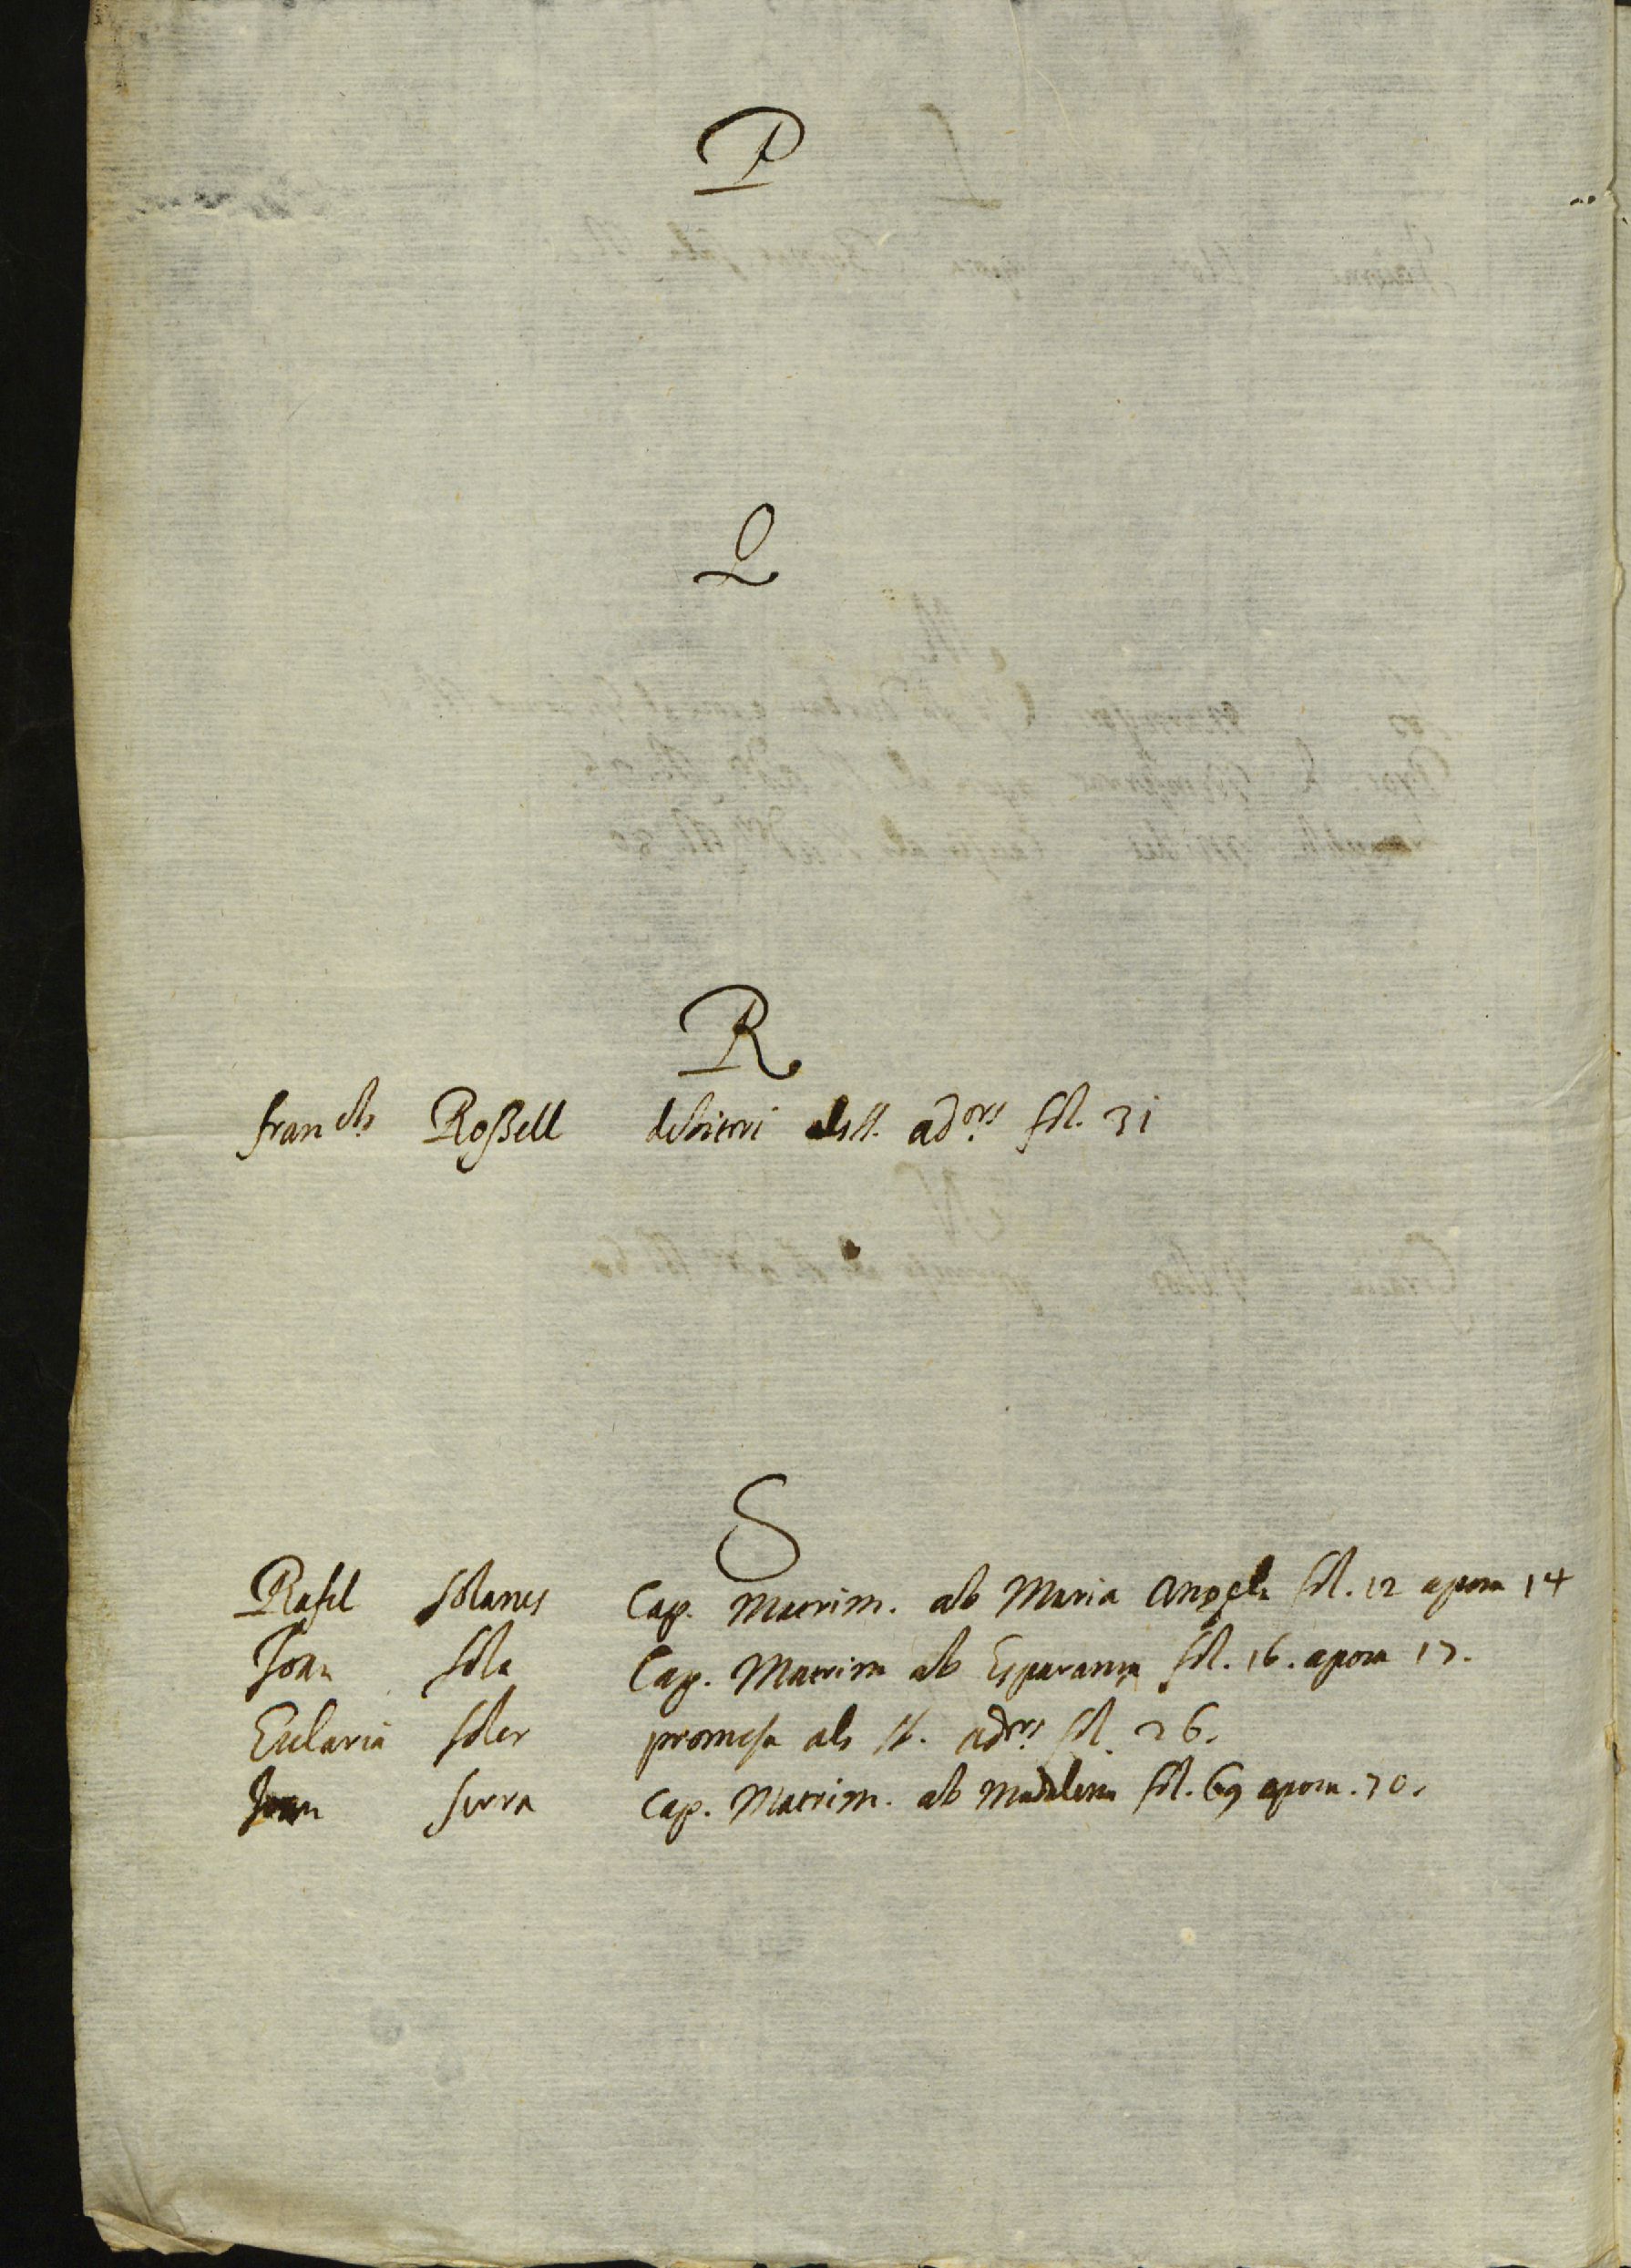 P
Q
R
franch Roßell debitori als ss. adors fol. 31
S
Rafel Solanes Cap. Matrim. ab Maria Angela fol. 12 apoca 14
Joan Sola Cap. Matrim ab Esparansa fol. 16. apoca 17.
Eularia Soler promesa als ss. adors fol. 26.
Joan Serra Cap. Matrim. ab Madalena fol. 69 apoca. 70.